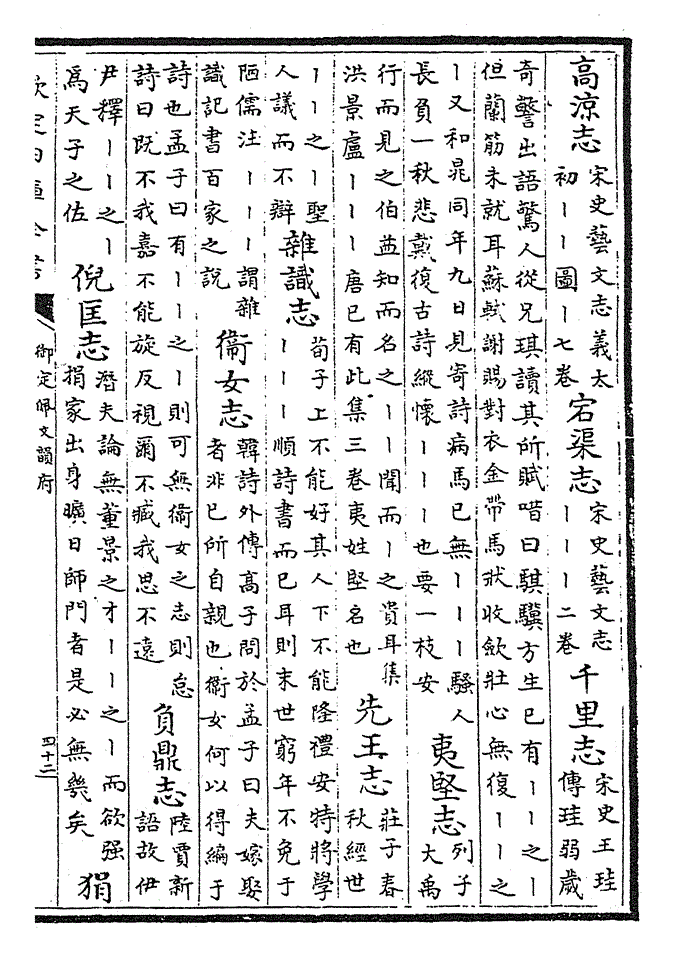 高涼志
宋史藝文志義太
初丨丨圖丨七卷
宕渠志
宋史藝文志
丨丨丨二卷
千里志
宋史王珪
傳珪弱歲
奇警出語驚人從兄琪讀其所賦唶曰騏驥方生已有丨丨之丨
但蘭筋未就耳蘇軾謝賜對衣金帶馬狀收斂壯心無復丨丨之
丨又和晁同年九日見寄詩病馬已無丨丨丨騷人
長負一秋悲戴復古詩縱懷丨丨丨也要一枝安
夷堅志
列子
大禹
行而見之伯益知而名之丨丨聞而丨之貴耳集
洪景盧丨丨丨唐已有此集三卷夷姓堅名也
先王志
莊子春
秋經世
丨丨之丨聖
人議而不辯
雜識志
荀子上不能好其人下不能隆禮安特將學
丨丨丨順詩書而已耳則末世窮年不免于
陋儒注丨丨丨謂雜
識記書百家之說
衞女志
韓詩外傳高子問於孟子曰夫嫁娶
者非已所自親也衞女何以得編于
詩也孟子曰有丨丨之丨則可無衞女之志則怠
詩曰既不我嘉不能旋反視爾不臧我思不遠
負鼎志
陸賈新
語故伊
尹釋丨丨之丨
爲天子之佐
倪匡志
潛夫論無董景之才丨丨之丨而欲强
捐家出身曠日師門者是必無幾矣
狷
欽定四庫全書
御定佩文韻府
四十二